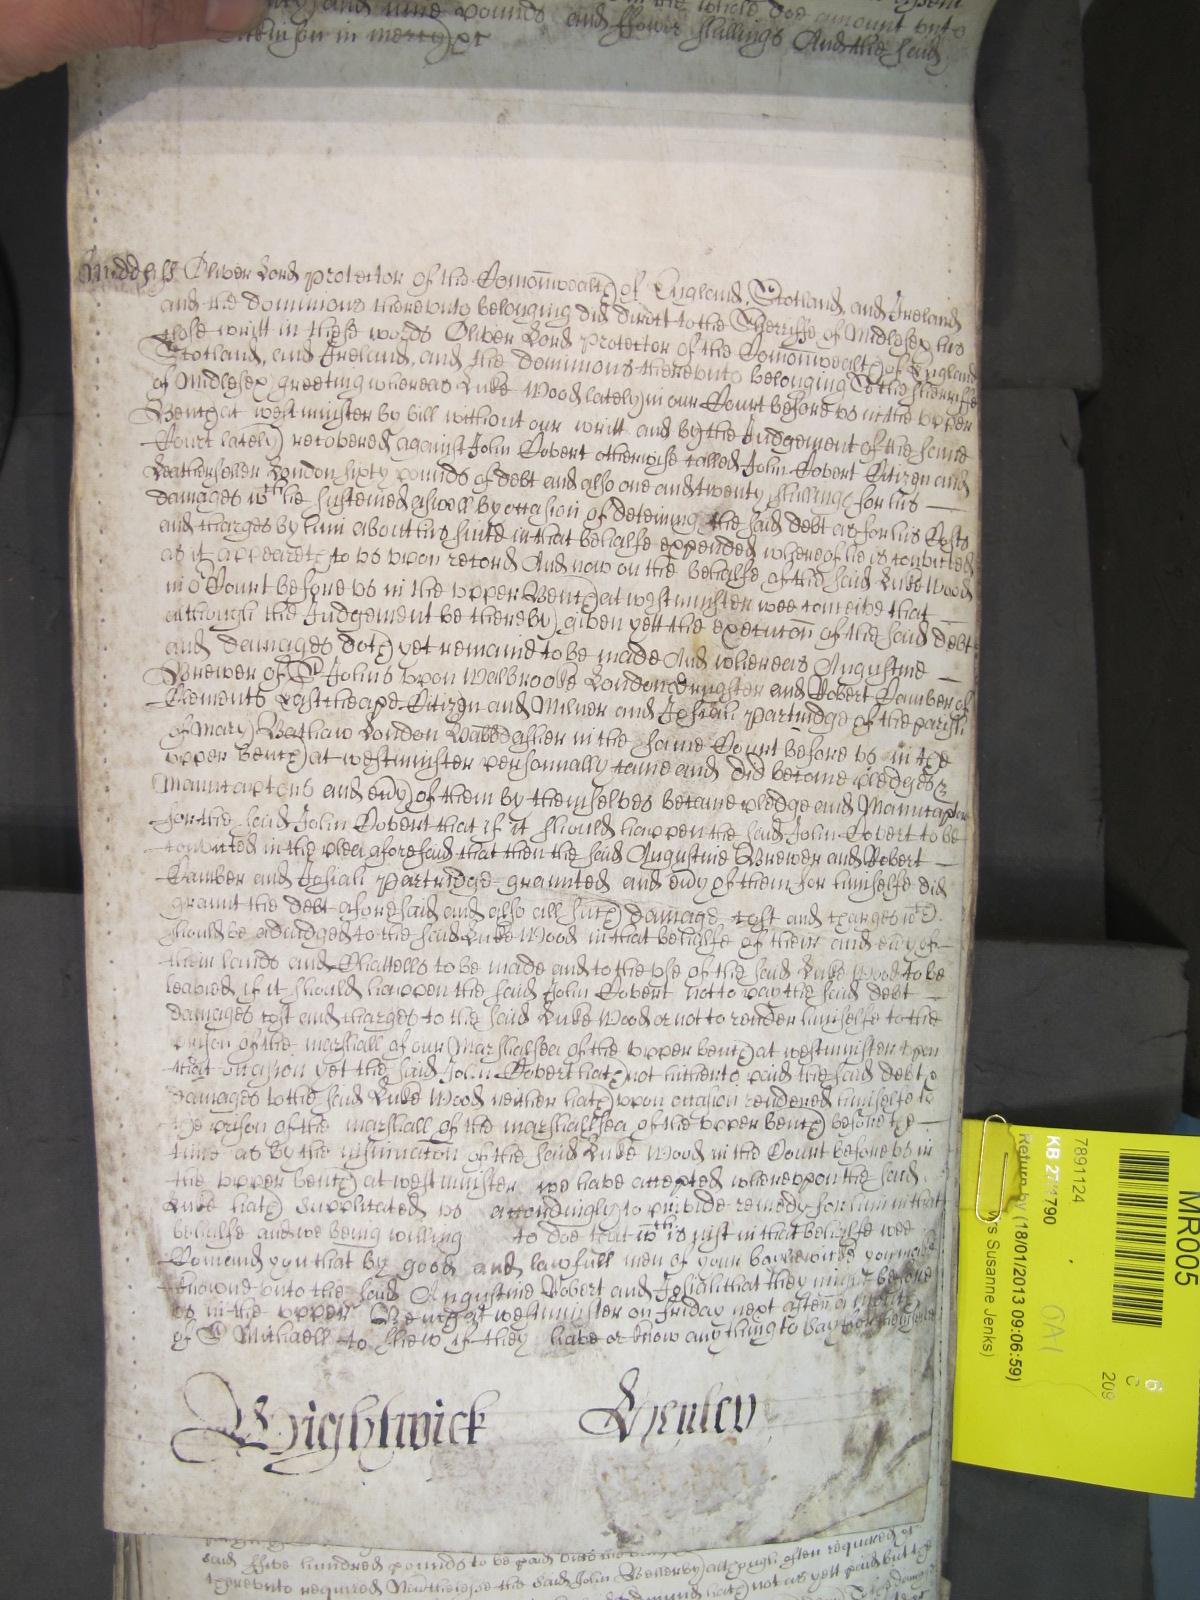 and nine pounds and ffower shillings And the said
in mercy &c
Midds ss Oliver Lord Protector of the Comonwealth of England, Scotland, and Ireland
and the dominions thereunto belonging did direct to the Sherriffe of Midlesex his
close writt in these words Oliver Lord Protector of the Comonwealth of England
Scotland, and Ireland, and the dominions thereunto belonging To the sherriffe
of Midlesex greeting whereas Luke Wood lately in our Court before us in the upper
Bench at westminster by bill without our writt and by the Judgement of the same
Court lately recovered against John Cobert otherwise called John Cobert Citizen and
Leatherseller London sixty pounds of debt and also one and twenty shillings for his
damages wch he susteined aswell by occasion of deteining the said debt as for his Costs
and charges by him about his suite in that behalfe expended whereof he is convicted
as it appeareth to us upon record And now on the behalfe of the said Luke Wood
in or Court before us in the upper Bench at westminster wee conceive that
although the Judgement be thereby given yett the execucon of the said debt
and damages doth yet remaine to be made And whereas Augustine
Brewer of St Johns upon Walbrooke London and Robert Camber of
Clements Eastcheape Citizen and Milner and Josiah Partridge of the parish
of Mary Bathaw London in the same Court before us in the
upper bench at westminster personnally came and did become pledges &
Mainucaptors and evry of them by themselves became pledge and Mainucaptor
for the said John Cobert that if it should happen the said John Cobert to be
convicted in the plea aforesaid that then the said Augustine Brewer and Robert
Camber and Josiah Partridge graunted and evry of them for himselfe did
graunt the debt aforesaid and also all such damage cost and charges wch
should be adiudged to the said Luke Wood in that behalfe of their and evry of
their lands and Chattells to be made and to the use of the said Luke Wood to be
leavied if it should happen the said John Cobert not to pay the said debt
damages cost and charges to the said Luke Wood or not to render himselfe to the
prison of the marshall of our Marshalsea of the upper bench at westminster upon
that occasion yet the said John Cobert hath not hitherto paid the said debt &
damages to the said Luke Wood neither hath upon occasion rendered himselfe to
the prison of the marshall of the marshallsea of the upper bench before the
time as by the insinuacon of the said Luke Wood in the Court before us in
the upper bench at westminster we have accepted whereupon the said
Luke hath supplicated us accordingly to provide remedy for him in that
behalfe and we being willing to doe that wch is just in that behalfe wee
Comend you that by good and lawfull men of your bayliwicke you make
knowne unto the said Augustine Robert and Josiah that they may be before
us in the upper Bench at westminster on friday next after
of St Michaell to shew if they have or know any thing to say for themselves
Wightwick Henley
said ffive hundred pounds to be paid often required &
thereunto required Nevertheless the said John hath not as yett paid but the
MR005
6
C
209
7891124
KB 27/1790
Return by (18/01/2013 09:06:59)
s Susanne Jenks)